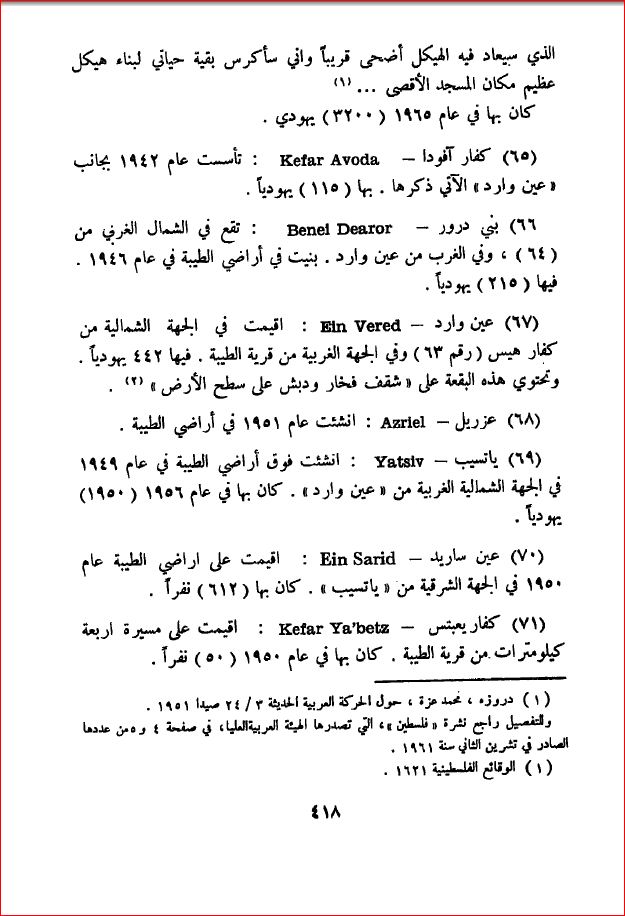 الذي سيعاد فيه الهيكل أضحى قريباً واني سأكرس بقية حياتي لبناء هيكل
عظيم مكان المسجد الأقصى ... (١)
كان بها في عام ١٩٦٥ (٣٢٠٠) يهودي .
(٦٥) كفار آفودا – Kefar Avoda : تأسست عام ١٩٤٢ بجانب
«عين وارد» الآتي ذكرها . بها (١١٥) يهودياً .
٦٦) بني درور – Benei Dearor : تقع في الشمال الغربي من
(٦٤) ، وفي الغرب من عين وارد . بنيت في أراضي الطيبة في عام ١٩٤٦ .
فيها (٢١٥) يهودياً .
(٦٧) عين وارد – Ein Vered : اقيمت في الجهة الشمالية من
كفار هيس (رقم ٦٣) وفي الجهة الغربية من قرية الطيبة . فيها ٤٤٢ يهودياً .
وتحتوي هذه البقعة على «شقف فخار ودبش على سطح الأرض» (٢) .
(٦٨) عزريل – Azriel : انشئت عام ١٩٥١ في أراضي الطيبة .
(٦٩) ياتسيب – Yatsiv : انشئت فوق أراضي الطيبة في عام ١٩٤٩
في الجهة الشمالية الغربية من «عين وارد» . كان بها في عام ١٩٥٦ (١٩٥٠)
يهودياً .
(٧٠) عين ساريد – Ein Sarid : اقيمت على اراضي الطيبة عام
١٩٥٠ في الجهة الشرقية من «ياتسيب» . كان بها (٦١٢) نفراً .
(٧١) كفار يعبتس – Kefar Ya'betz : اقيمت على مسيرة اربعة
كيلومترات من قرية الطيبة . كان بها في عام ١٩٥٠ (٥٠) نفراً .
(١) دروزه ، محمد عزة ، حول الحركة العربية الحديثة ٣ / ٢٤ صيدا ١٩٥١ .
وللتفصيل راجع نشرة «فلسطين»، التي تصدرها الهيئة العربية العليا، في صفحة ٤ و٥ من عددها
الصادر في تشرين الثاني سنة ١٩٦١ .
(١) الوقائع الفلسطينية ١٦٢١ .
٤١٨